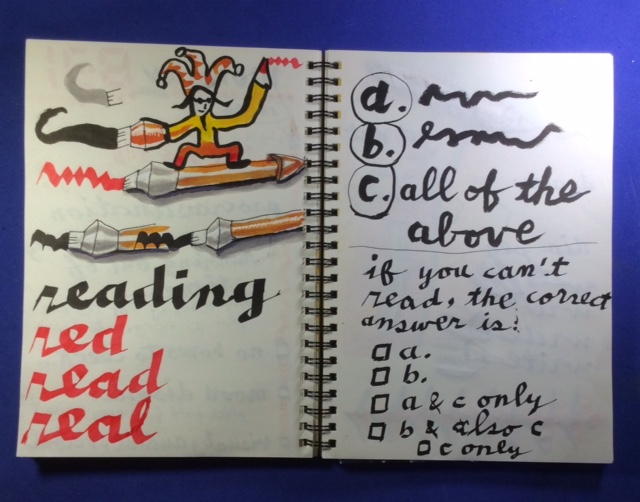 reading
red
read
real
a.
b.
c. all of the
above
if you can't
read, the correct
answer is:
a.
b.
a & c only
b & also c
c only